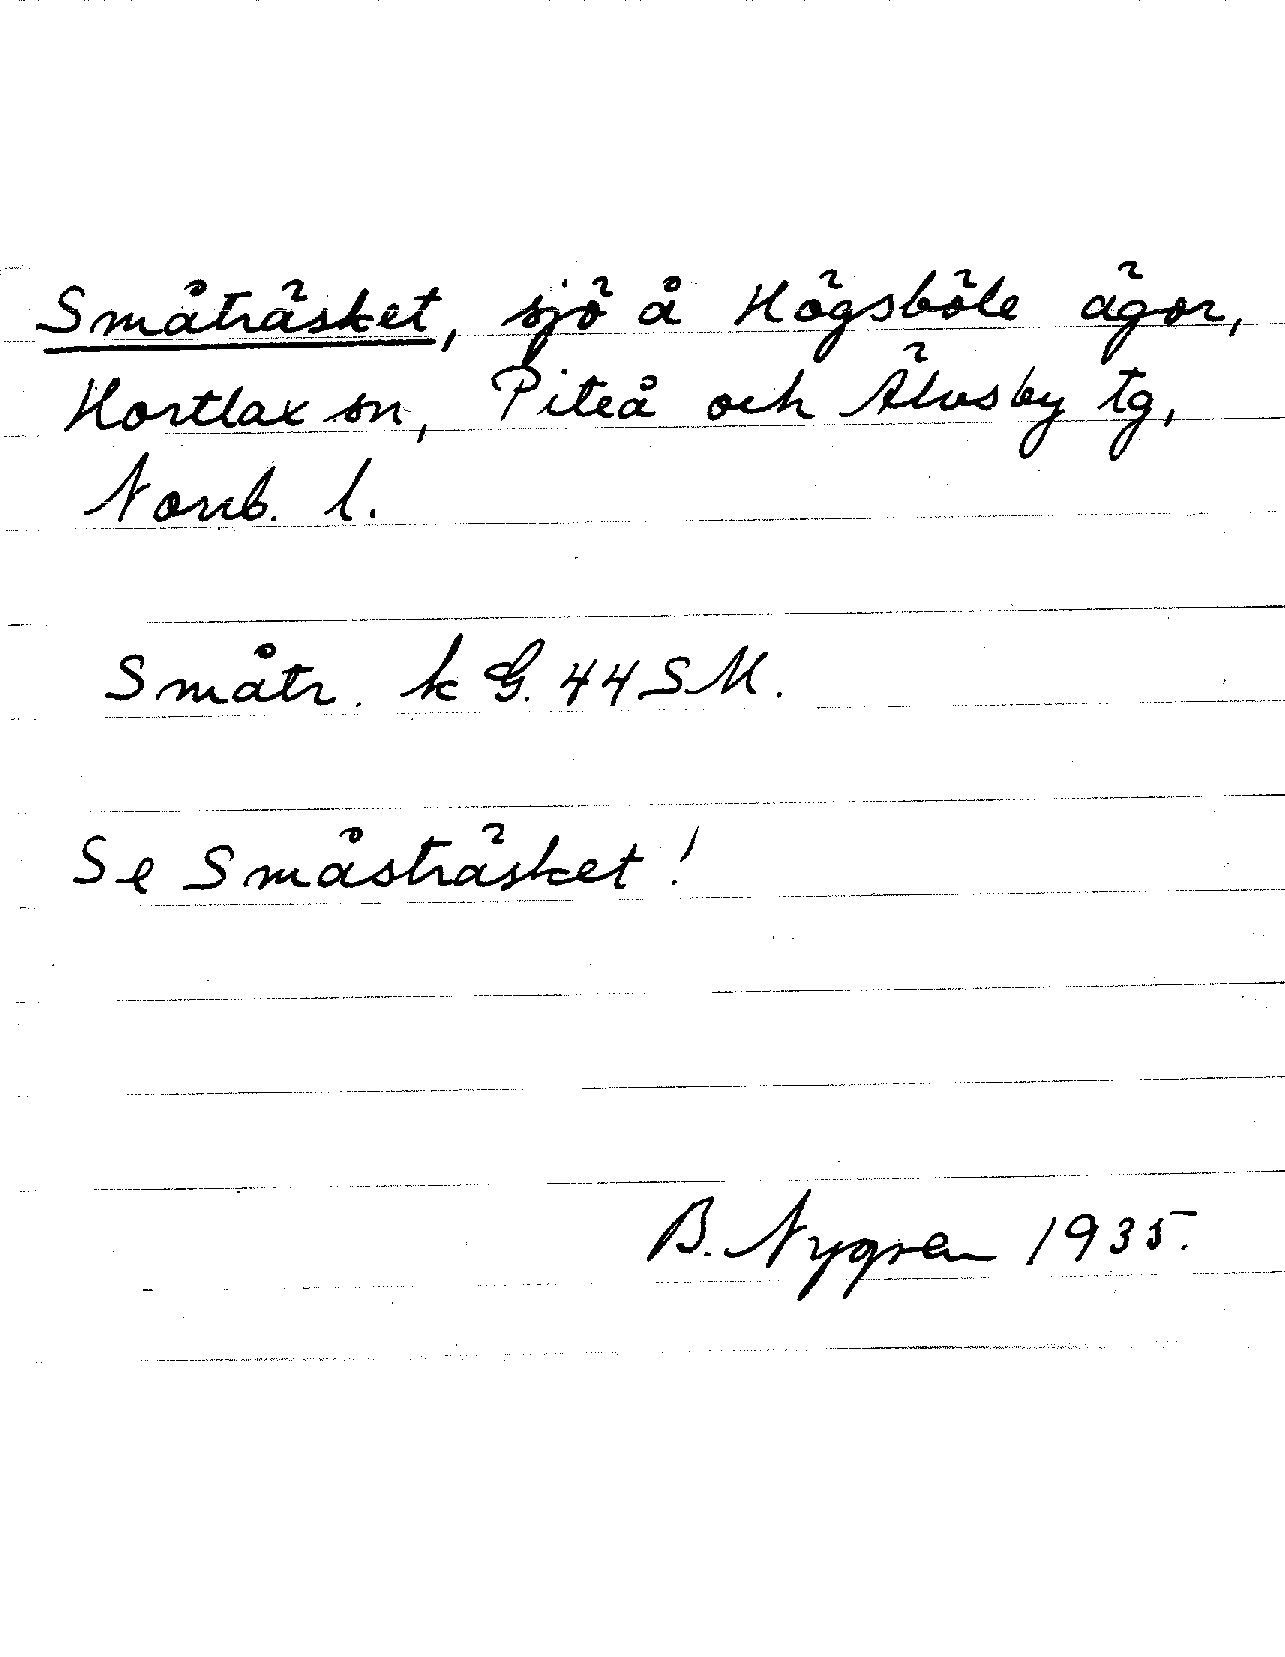 Småträsket, sjö å Högsböle ägor,
Hortlax sn, Piteå och Älvsby tg,
Norrb. l.
Småtr. k G. 44 SM.
Se Småsträsket!
B. Nygren 1935.